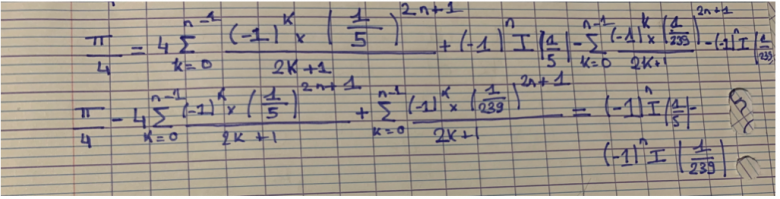 π/4 = 4 Σ_{k=0}^{n-1} (-1)^k × (1/5)^{2n+1} / 2k+1 + (-1)^n I(1/5) - Σ_{k=0}^{n-1} (-1)^k × (1/239)^{2n+1} / 2k+1 - (-1)^n I(1/239)
π/4 - 4 Σ_{k=0}^{n-1} (-1)^k × (1/5)^{2n+1} / 2k+1 + Σ_{k=0}^{n-1} (-1)^k × (1/239)^{2n+1} / 2k+1 = (-1)^n I(1/5) -
(-1)^n I(1/239)